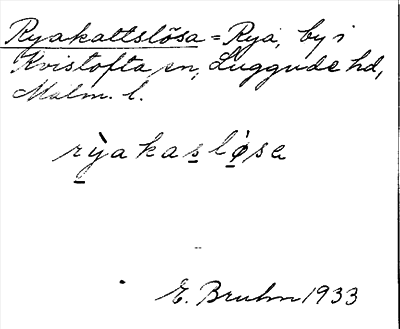 Ryakattslösa = Rya, by i
Kvistofta sn, Luggude hd,
Malm. l.
r̲ỳakas̲lø̣̀sa
E. Bruhn 1933